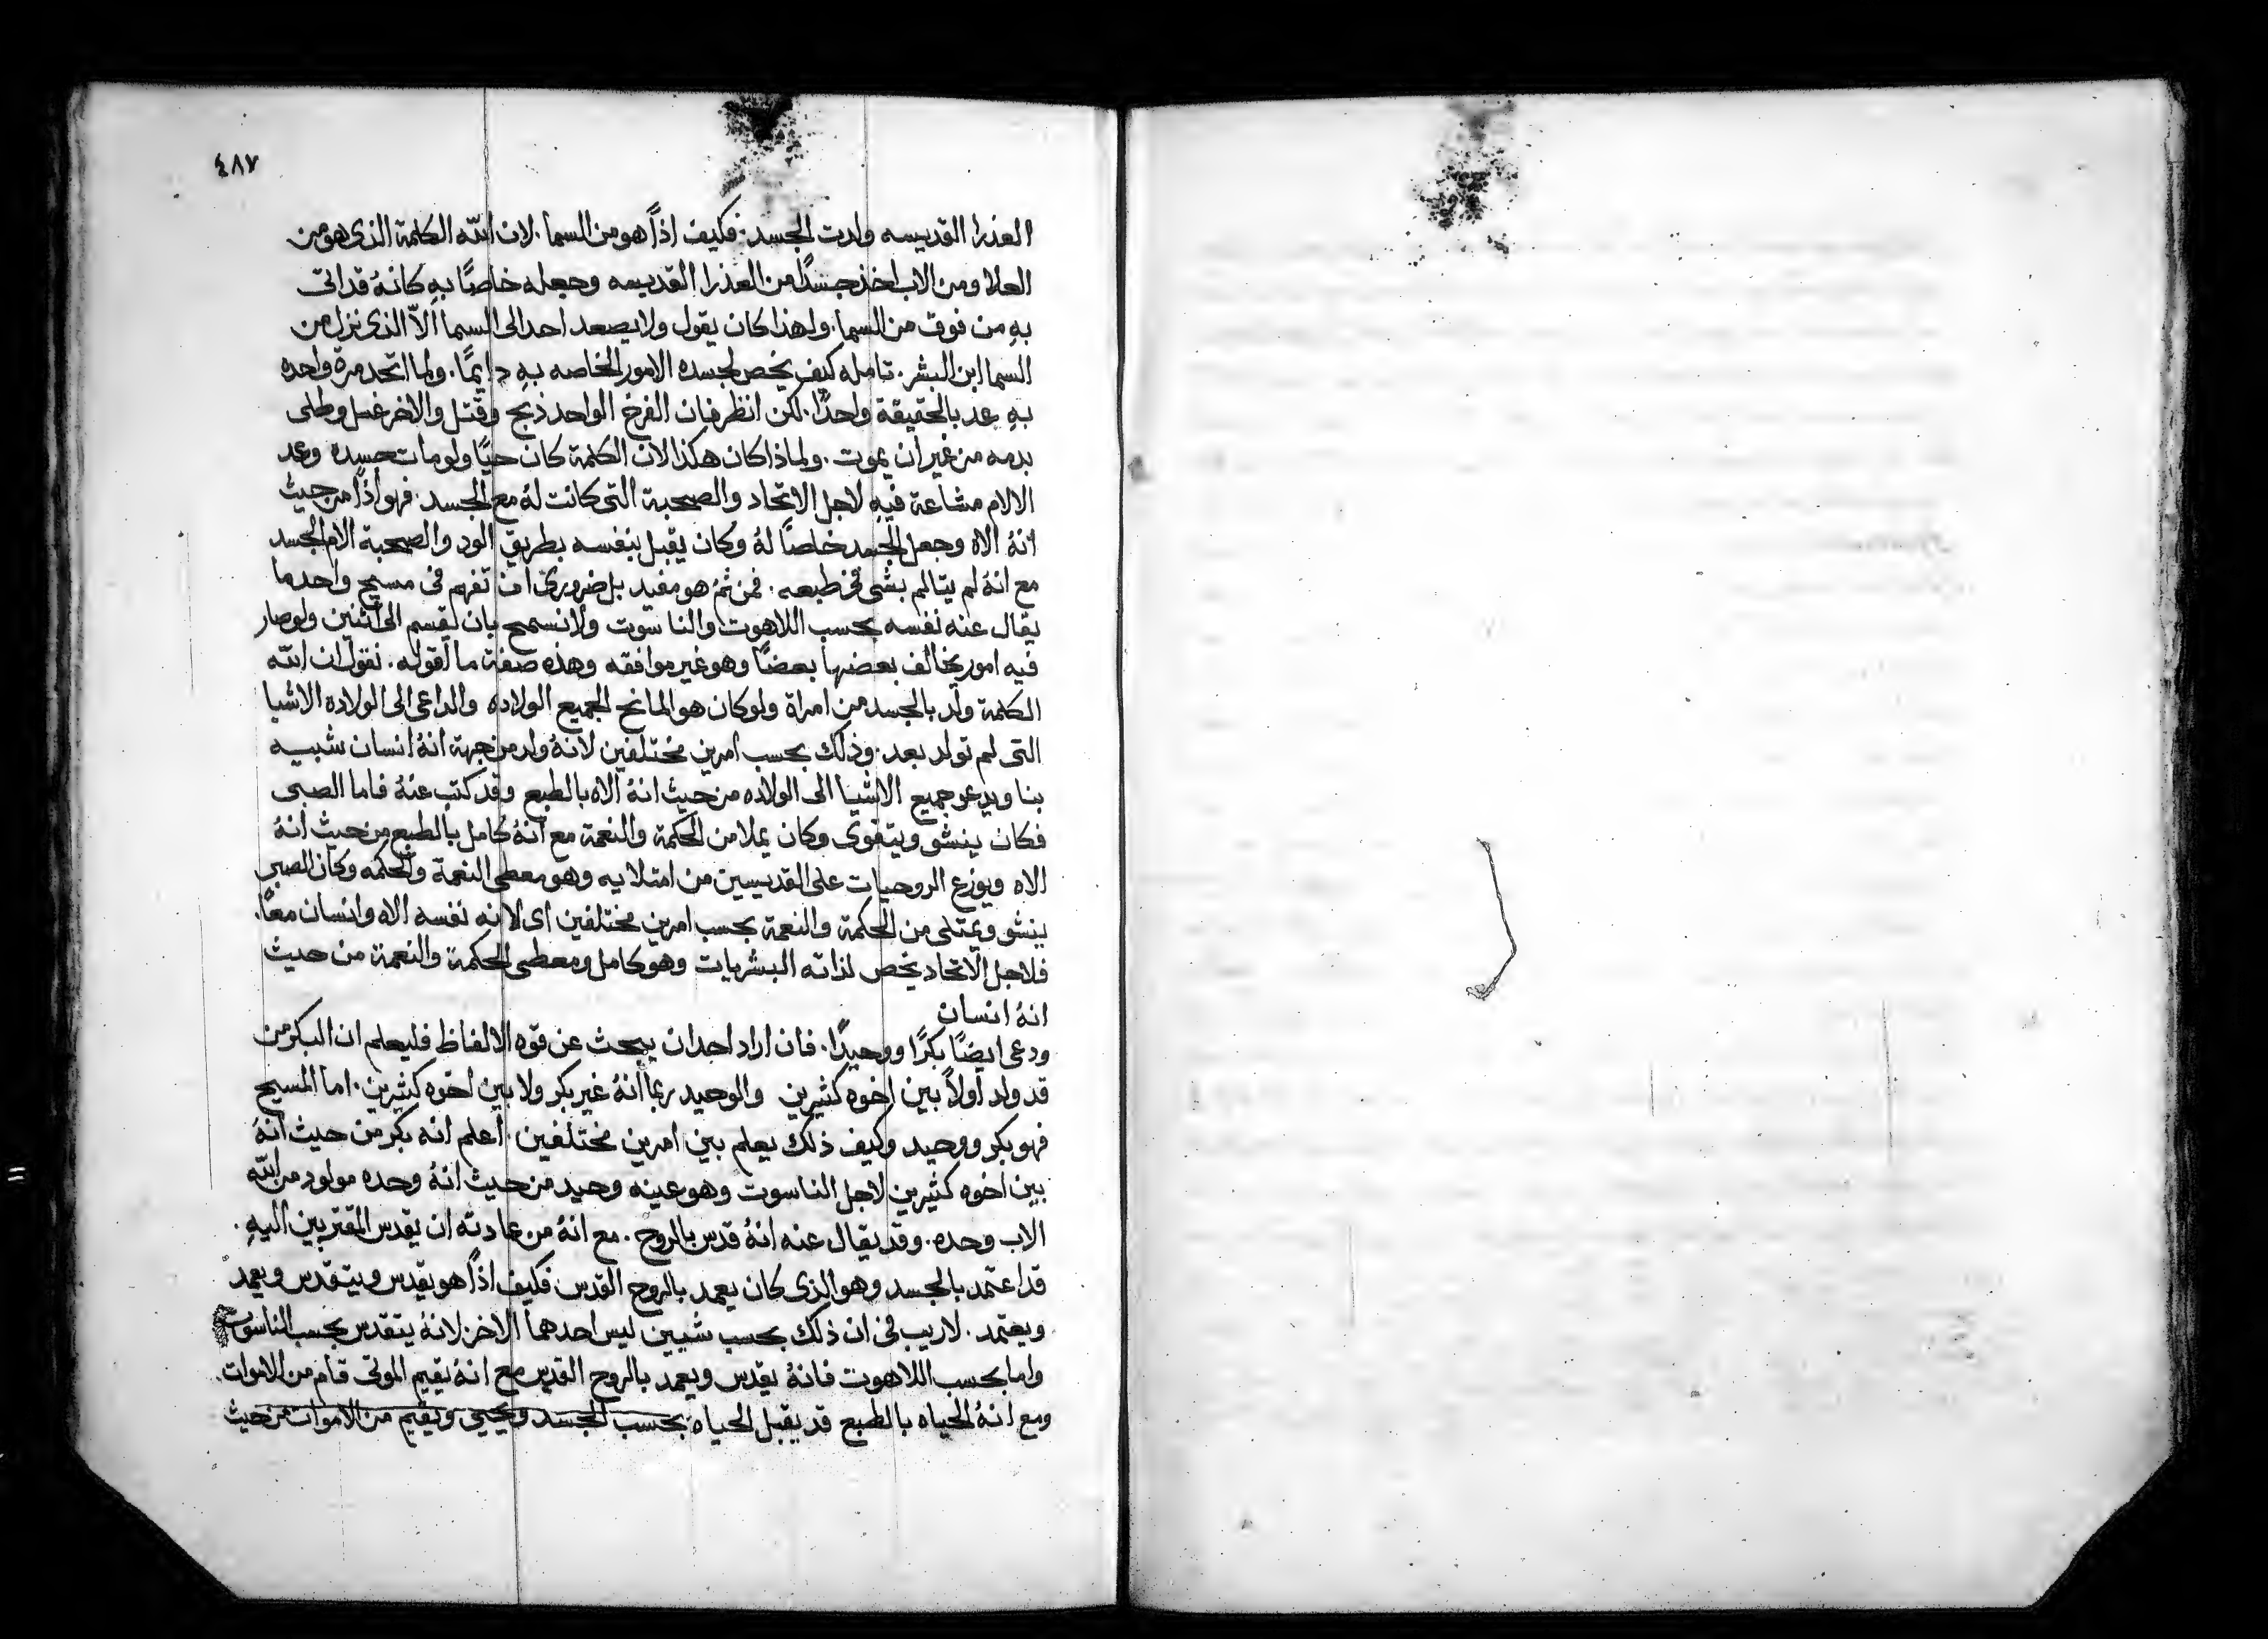 ٤٨٧
العذرا القديسه ولدت الجسد. فكيف اذاً هو من السما. لان الله الكلمة الذى هو من
العلا ومن الاب اخذ جسداً من العذرا القديسه وجعله خاصّاً بهِ كانهُ قد اتى
بهِ من فوق من السما. ولهذا كان يقول ولا يصعد احد الى السما الّا الذى نزل من
السما ابن البشر. تامله كيف يخص لجسده الامور الخاصه بهِ دايمًا. ولما اتحد مرة واحده
بهِ عد بالحقيقة واحدًا. لكن انظر فان الفرخ الواحد ذبح وقتل والاخر غسل وطلى
بدمه من غير ان يموت. ولماذا كان هكذا لان الكلمة كان حيًا ولو مات جسده وعد
الالام مشاعة فيهِ لاجل الاتحاد والصحبة التى كانت لهُ مع الجسد. فهو اذاً من حيث
انهُ الاه وجعل الجسد خاصاً لهُ وكان يقبل بنفسه بطريق الود والصحبة الام الجسد
مع انهُ لم يتالم بشى فى طبعه. فمن ثمُ هو مفيد بل ضرورى ان تفهم فى مسيح واحد ما
يقال عنه نفسه بحسب اللاهوت والناسوت ولا نسمح بان يقسم الى اثنين ولو صار
فيه امور يخالف بعضها بعضًا وهو غير موافقه وهذه صفة ما اقوله. نقول ان الله
الكلمة ولد بالجسد من امراة ولو كان هو المانح الجميع الولاده والداعى الى الولاده الاشيا
التى لم تولد بعد. وذلك بحسب امرين مختلفين لانهُ ولد من جهة انهُ انسان شبيه
بنا ويدعو جميع الاشيا الى الولاده من حيث انهُ الاه بالطبع وقد كتب عنهُ فاما الصبى
فكان ينشو ويتقوى وكان يملا من الحكمة والنعمة مع انهُ كامل بالطبع من حيث انهُ
الاه ويوزع الروحيات على القديسين من امتلايه وهو معطى النعمة والحكمه وكان الصبى
ينشو ويمتلى من الحكمة والنعمة بحسب امرين مختلفين اى لانه نفسه الاه وانسان معًا.
فلاجل الاتحاد يخص لذاته البشريات وهو كامل ومعطى الحكمة والنعمة من حيث
انهُ انسان
ودعى ايضًا بكرًا ووحيدًا. فان اراد احد ان يبحث عن قوه الالفاظ فليعلم ان البكر من
قد ولد اولاً بين اخوه كثيرين والوحيد ربما انهُ غير بكر ولا بين اخوه كثيرين. اما المسيح
فهو بكر ووحيد وكيف ذلك يعلم بين امرين مختلفين. اعلم انه بكر من حيث انهُ
بين اخوه كثيرين لاجل الناسوت وهو عينه وحيد من حيث انهُ وحده مولود من الله
الاب وحده. وقد يقال عنه انهُ قدس بالروح. مع انهُ من عادته ان يقدس المقتربين اليهِ.
قد اعتمد بالجسد وهو الذى كان يعمد بالروح القدس. فكيف اذاً هو يقدس ويتقدس ويعمد
ويعتمد. لا ريب فى ان ذلك بحسب شيين ليس احدهما الاخر لانهُ يتقدس بحسب الناسوت
واما بحسب اللاهوت فانهُ يقدس ويعمد بالروح القدس مع انهُ يقيم الموتى قام من الاموات.
ومع انهُ الحياه بالطبع قد يقبل الحياه بحسب الجسد ويحيى ويقيم من الاموات من حيث